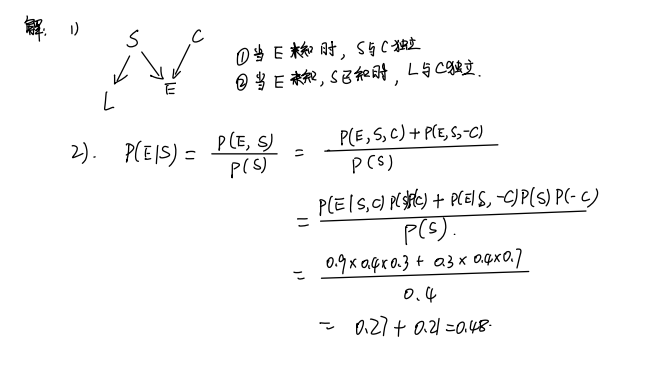 解. 1)
S C
L E
①当E未知时，S与C独立
②当E未知，S已知时，L与C独立.
2). P(E|S) = P(E,S) / P(S) = P(E,S,C)+P(E,S,-C) / P(S)
= P(E|S,C)P(S)P(C)+P(E|S,-C)P(S)P(-C) / P(S).
= 0.9×0.4×0.3+0.3×0.4×0.7 / 0.4
= 0.27+0.21=0.48.